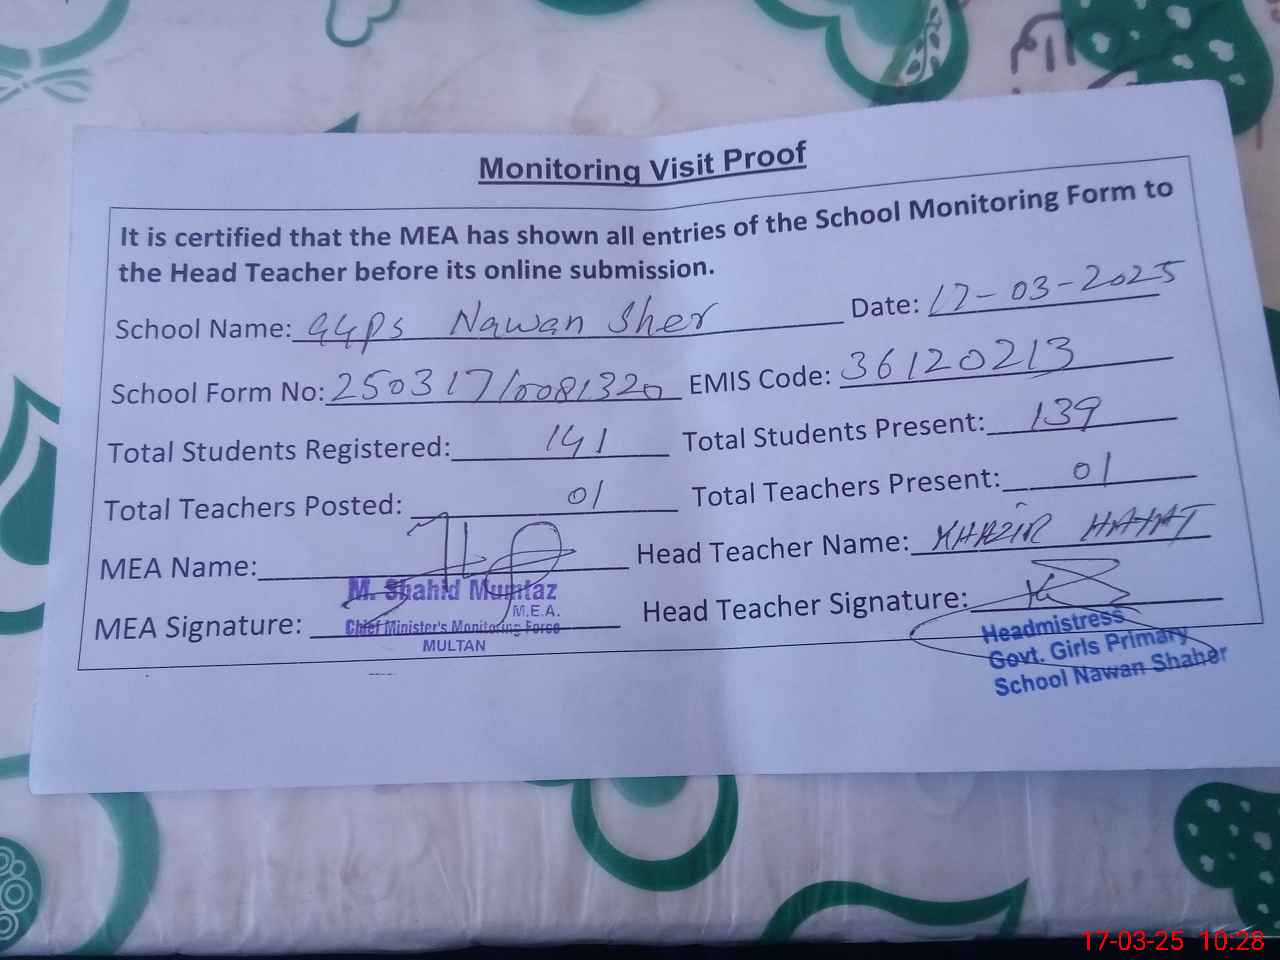 Monitoring Visit Proof
It is certified that the MEA has shown all entries of the School Monitoring Form to
the Head Teacher before its online submission.
School Name: GGPS Nawan Sher Date: 17-03-2025
School Form No: 250317/0081320 EMIS Code: 36120213
Total Students Registered: 141 Total Students Present: 139
Total Teachers Posted: 01 Total Teachers Present: 01
MEA Name: Head Teacher Name: HAYAT
M. Shahid Mumtaz
M.E.A.
MEA Signature: Head Teacher Signature:
Chief Minister's Monitoring Force
MULTAN
Headmistress
Govt. Girls Primary
School Nawan Shaher
17-03-25 10:28